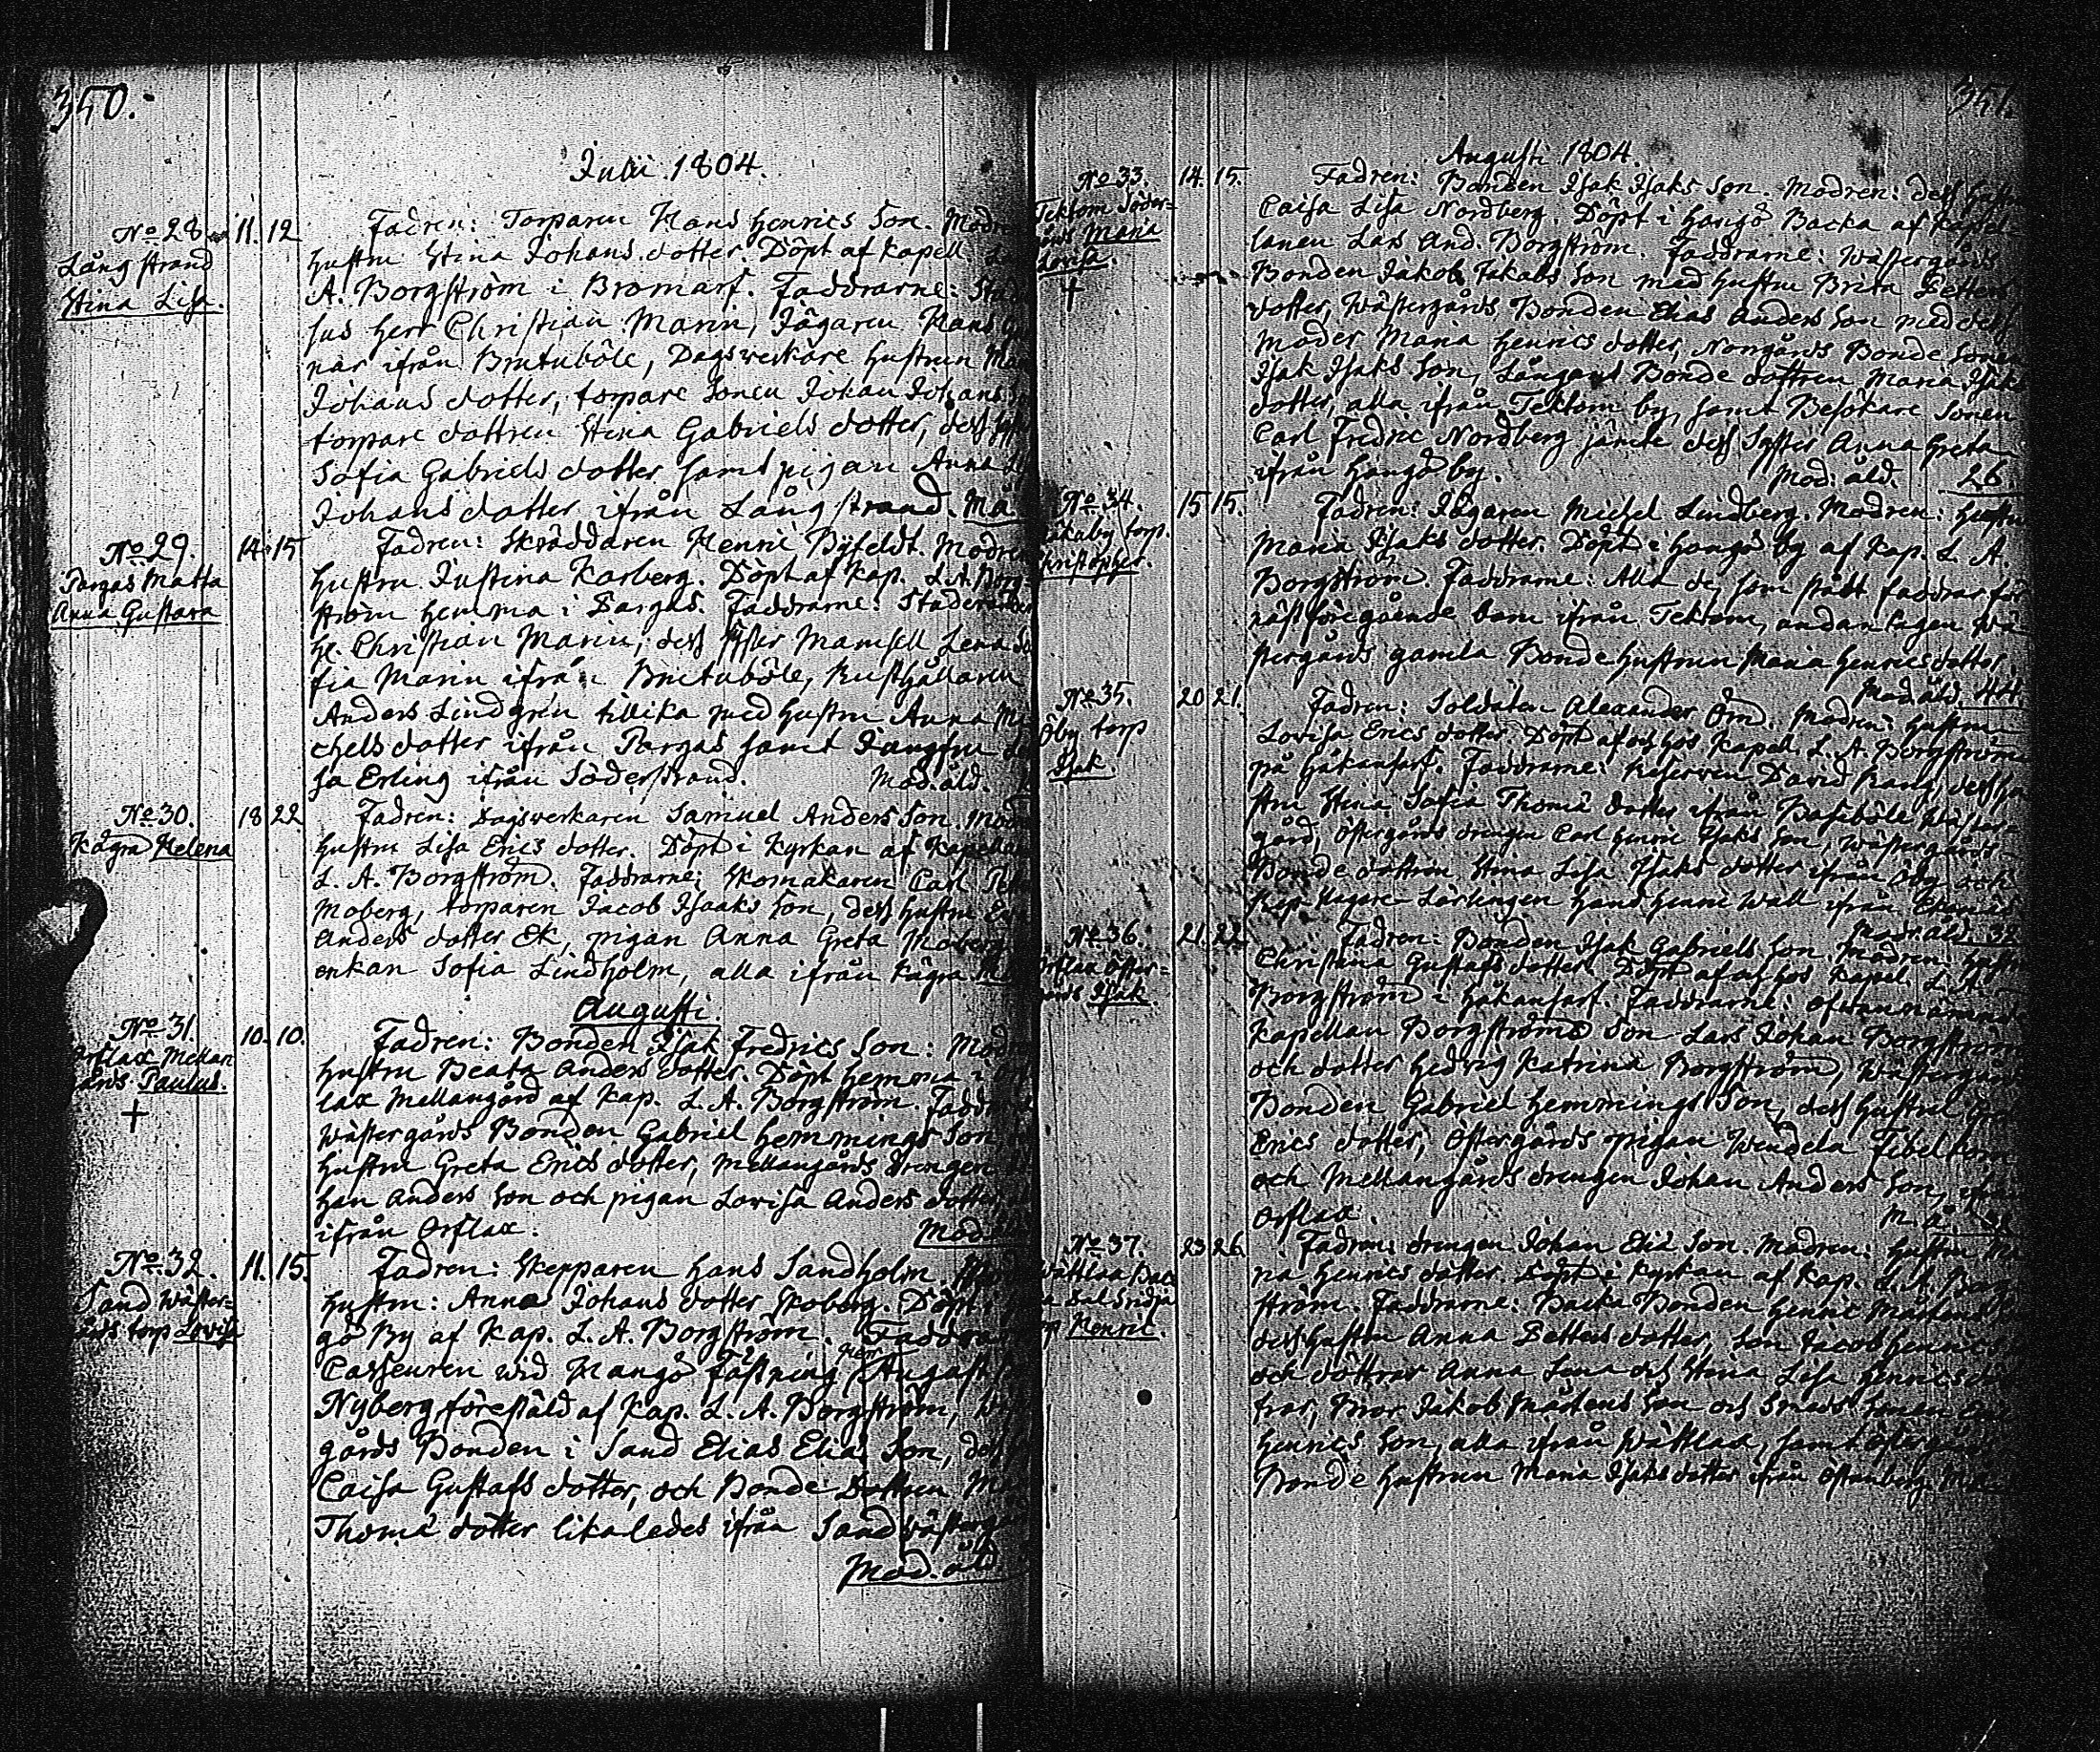 350.
Julii 1804.
No 28
Långstrand
Stina Lisa.
11. 12
Fadren: Torparen Hans Henrics Son. Modr
hustru Stina Johans dotter. Döpt af Kapell
A. Borgström i Bromarf. Faddrarne:
Herr Christian Marin, Jägaren Hans
ifrån Brutuböle, Dagsverkare hustrun
Johans dotter, torpare Sonen Johan Johans
torpare dottren Stina Gabriels dotter, dess
Sofia Gabriels dotter samt pigan Anna
Johans dotter ifrån Långstrand.
No 29.
Pargas Matta
Anna Gustava
14. 15
Fadren: Skräddaren Henric Byfeldt. Modren
hustru Justina Karberg. Döpt af Kap. L. A. Borg-
ström hemma i Pargas. Faddrarne:
H. Christian Marin, dess syster Mamsell Lena So
fia Marin ifrån Brutuböle, Rusthållaren
Anders Lindgren tillika med hustru Anna Mi
chels dotter ifrån Pargas samt Jungfru
sa Erling ifrån Söderstrand. Mod. åld.
No 30.
Kågra Helena
18 22
Fadren: Dagsverkaren Samuel Anders Son. Mod
hustru Lisa Erics dotter. Döpt i Kyrkan af Kapellan
L. A. Borgström. Faddrarne: Skomakaren Carl
Moberg, torparen Jacob Isaaks Son, dess hustru
Anders dotter Ek, pigan Anna Greta Moberg
enkan Sofia Lindholm, alla ifrån Kågra
Augusti.
No 31.
Orslax Mellan
gårds Paulus.
+
10. 10.
Fadren: Bonden Isak Fredrics Son: Modr
hustru Beata Anders dotter. Döpt hemma i Ors
lax Mellangård af Kap. L. A. Borgström. Faddr
Wästergårds Bonden Gabriel Hemmings Son,
hustru Greta Erics dotter, Mellangårds drengen
han Anders Son och pigan Lovisa Anders dotter
ifrån Orslax. Mod.
No 32.
Sand Wäster-
gårds torp Lovisa
11. 15.
Fadren: Skepparen Hans Sandholm.
hustru: Anna Johans dotter Skoberg. Döpt i
gö By af Kap. L. A. Borgström. Faddrar
Casseuren wid Hangö Fästning Herr August
Nyberg föreställd af Kap. L. A. Borgström,
gårds Bonden i Sand Elias Elias Son,
Caisa Gustafs dotter, och Bonde Dottren
Thomæ dotter likaledes ifrån Sand Wästergård
Mod. åld
351.
Augusti 1804.
No 33.
Tektom Söder-
gårds Maria
Lovisa.
+
14. 15.
Fadren: Bonden Isak Isaks Son. Modren: dess hustr
Caisa Lisa Nordberg. Döpt i Hangö Backa af Kapel-
lanen Lars And. Borgström. Faddrarne: Wästergårds
Bonden Jakob Jakobs Son med hustru Brita Petters
dotter, Wästergårds Bonden Elias Anders Son med dess
Moder Maria Henrics dotter, Norrgårds Bonde Sonen
Isak Isaks Son, Långans Bonde dottren Maria Isaks
dotter, alla ifrån Tektom by, samt Besökare Sonen
Carl Fredric Nordberg jämte dess Syster Anna Greta
ifrån Hangö by. Mod. åld. 26.
No 34.
torp.
Christopher.
15 15.
Fadren: Jägaren Michel Lindberg. Modren: hustru
Maria Isaks dotter. Döpt i Hangö by af Kap. L. A.
Borgström. Faddrarne: Alla de, som stått faddrar för
näst föregående barn ifrån Tektom, undantagen Wä
stergårds gamla Bonde hustrun Maria Henrics dotter.
Mod. åld. 44
No 35.
Öby torp
Isak
20 21.
Fadren: Soldaten Alexander Ord. Modren: hustru
Lovisa Erics dotter. Döpt af och hos Kapel. L. A. Borgström
på Håkansarf. Faddrarne: David Rang, dess hu
stru Stina Sofia Thomæ dotter ifrån Basaböle Wäster-
gård, Östergårds drengen Carl Henric Isaks Son, Wästergårds
Bonde dottren Stina Lisa Isaks dotter ifrån Öby och
Lärlingen Hans Henric Wall ifrån Ekenäs
Mod. åld. 32
No 36.
Orslax Öster-
gårds Isak
21. 22.
Fadren: Bonden Isak Gabriels Son. Modren: hustru
Christina Gustafs dotter. Döpt af och hos Kapel. L. A.
Borgström i Håkansarf. Faddrarne: Ofwannämnde
Kapellan Borgströms Son Lars Johan Borgström
och dotter Hedvig Katrina Borgström, Wästergårds
Bonden Gabriel Hemmings Son, dess hustru Greta
Erics dotter, Östergårds pigan Wendela Fibelkorn
och Mellangårds drengen Johan Anders Son, ifrån
Orslax. M. å. 32
No 37.
Wättlax Bac
Henric.
23 26.
Fadren: drengen Johan Eliæ Son. Modren: hustru
na Henrics dotter. Döpt i Kyrkan af Kap. L. A. Borg
ström. Faddrarne: Backa Bonden Henric Mårtens
dess hustru Anna Petters dotter, Son Jacob Henrics
och döttrar Anna Lena och Stina Lisa Henrics döt
trar, Bror Jakob Mårtens Son och Sonen
Henrics Son, alla ifrån Wättlax, samt Östergårds
Bonde hustrun Maria Isaks dotter ifrån Östanberg.